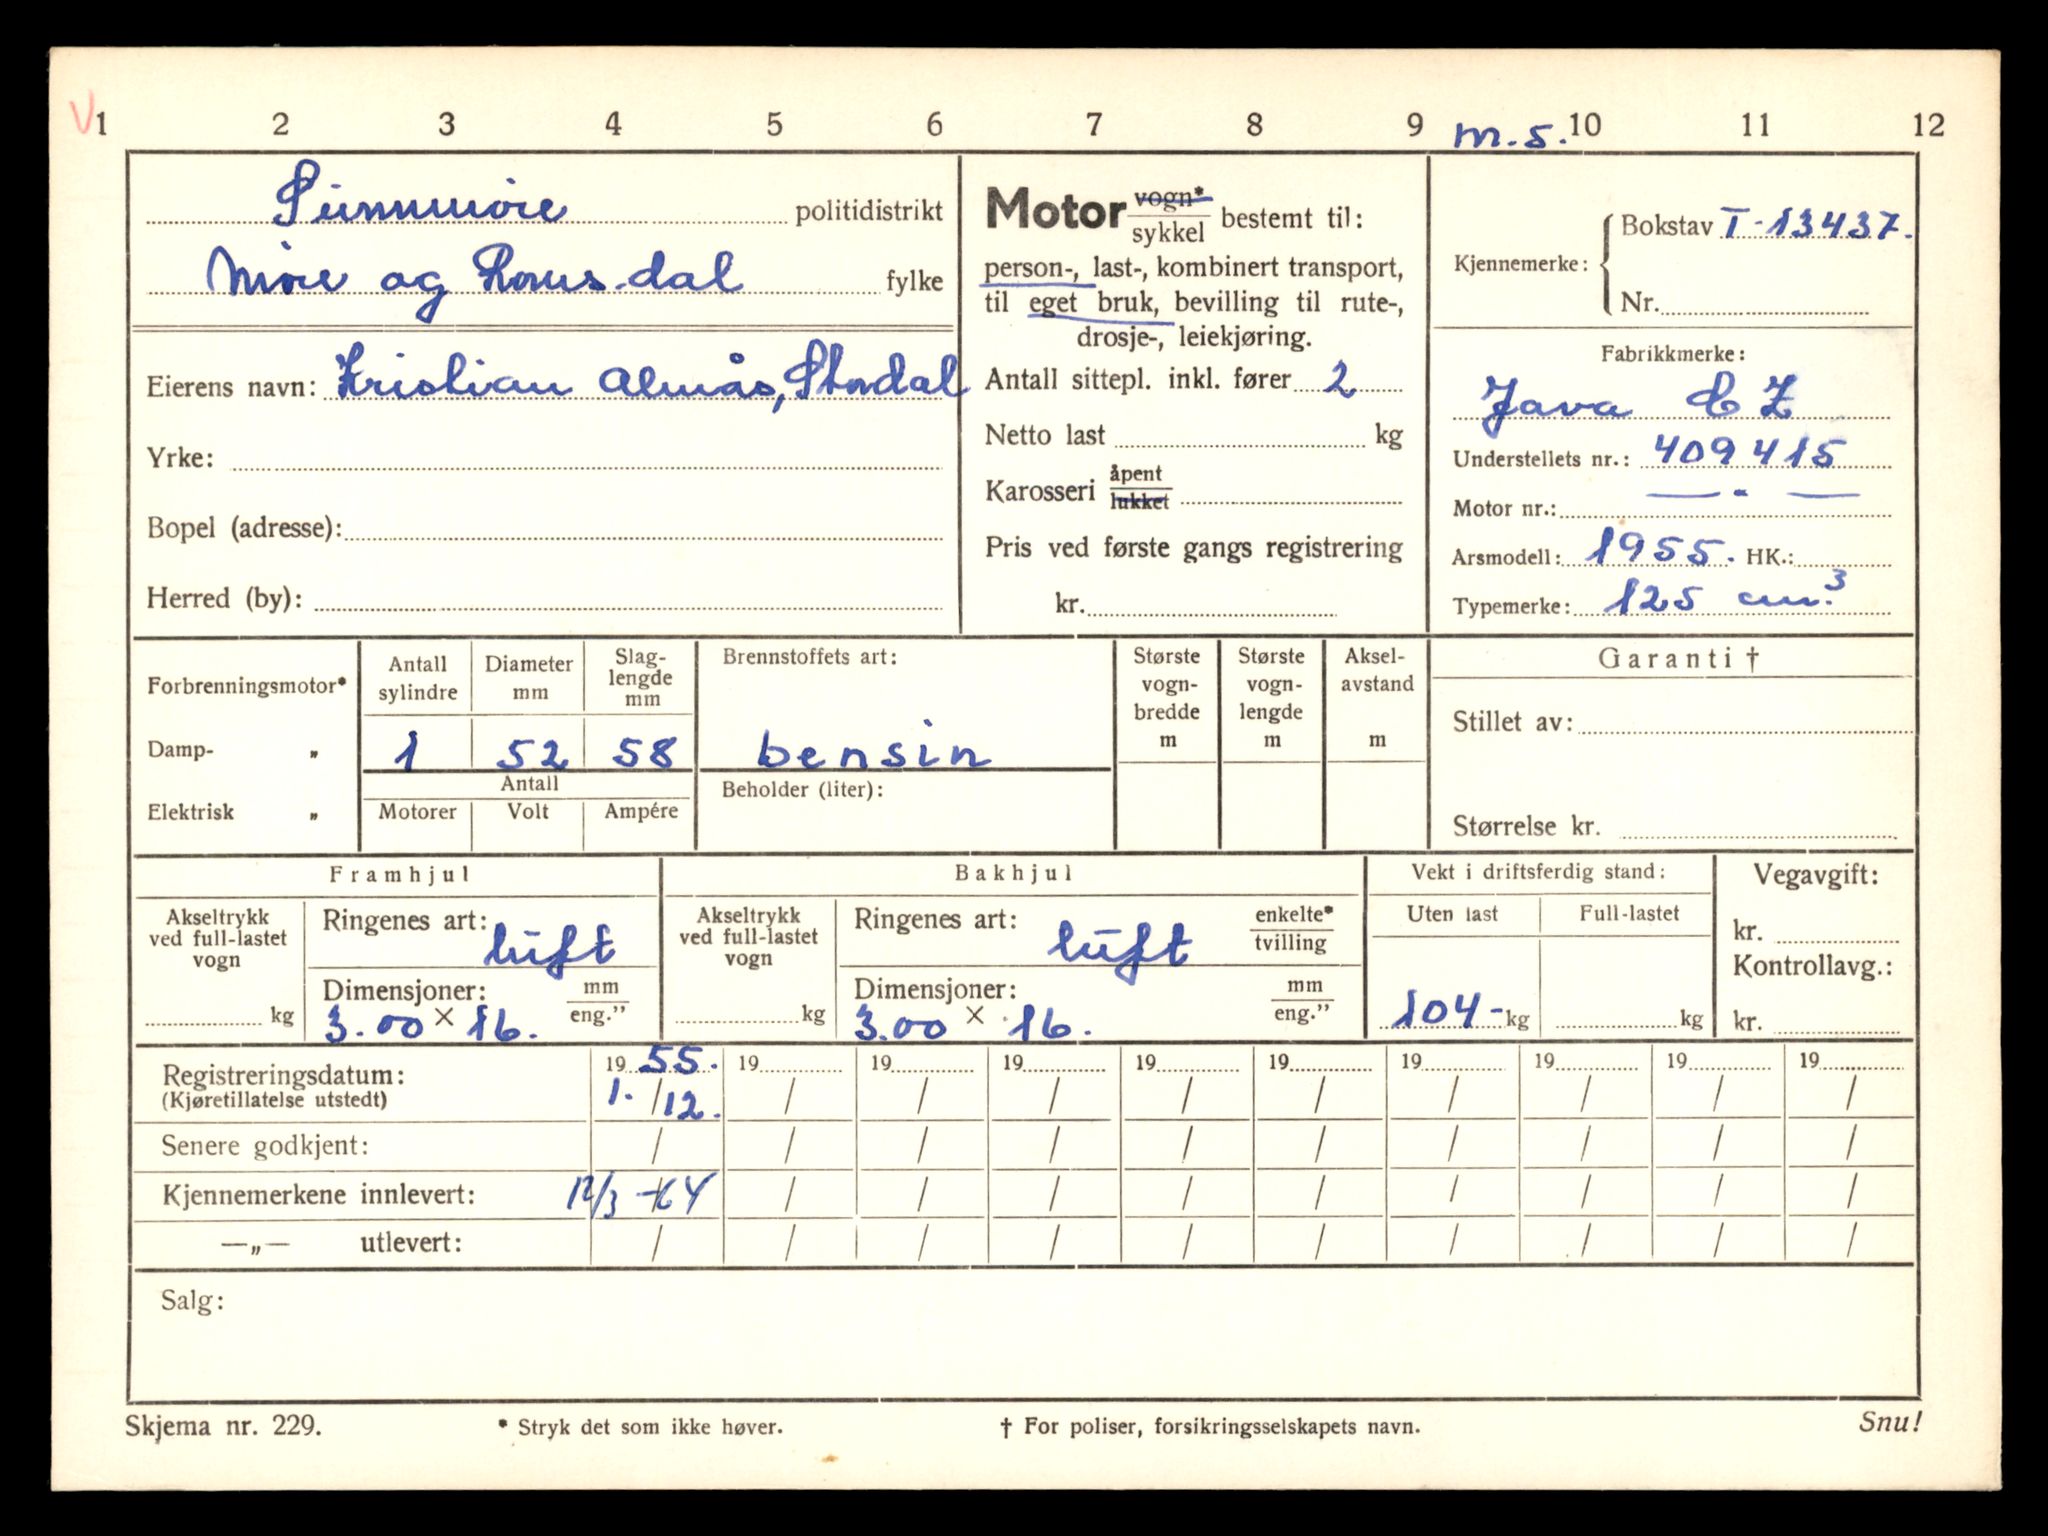 V 1 2 3 4 5 6 7 8 9 m.s. 10 11 12
Sunnmøre politidistrikt
Møre og Romsdal fylke
Eierens navn: Kristian Almås, Stordal
Yrke:
Bopel (adresse):
Herred (by):
Motor vogn* / sykkel bestemt til:
person-, last-, kombinert transport,
til eget bruk, bevilling til rute-,
drosje-, leiekjøring.
Antall sittepl. inkl. fører 2
Netto last kg
Karosseri åpent / lukket
Pris ved første gangs registrering
kr.
Kjennemerke: Bokstav T-13437.
Nr.
Fabrikkmerke:
Java CZ
Understellets nr.: 409415
Motor nr.: — " —
Arsmodell: 1955. HK.:
Typemerke: 125 cm.3
Forbrenningsmotor*
Damp- „
Elektrisk „
Antall sylindre 1
Diameter mm 52
Slag-lengde mm 58
Antall
Motorer Volt Ampére
Brennstoffets art:
bensin
Beholder (liter):
Største vogn-bredde m
Største vogn-lengde m
Aksel-avstand m
Garanti †
Stillet av:
Størrelse kr.
Framhjul
Akseltrykk
ved full-lastet
vogn
kg
Ringenes art: luft
Dimensjoner: mm / eng.”
3.00 × 16.
Bakhjul
Akseltrykk
ved full-lastet
vogn
kg
Ringenes art: luft enkelte* / tvilling
Dimensjoner: mm / eng.”
3.00 × 16.
Vekt i driftsferdig stand:
Uten last Full-lastet
104- kg kg
Vegavgift:
kr.
Kontrollavg.:
kr.
Registreringsdatum: 19 55. 19 19 19 19 19 19 19 19 19
(Kjøretillatelse utstedt) 1. / 12. / / / / / / / / /
Senere godkjent: / / / / / / / / / /
Kjennemerkene innlevert: 12/3 -64 / / / / / / / / /
—„— utlevert: / / / / / / / / / /
Salg:
Skjema nr. 229. * Stryk det som ikke høver. † For poliser, forsikringsselskapets navn. Snu!